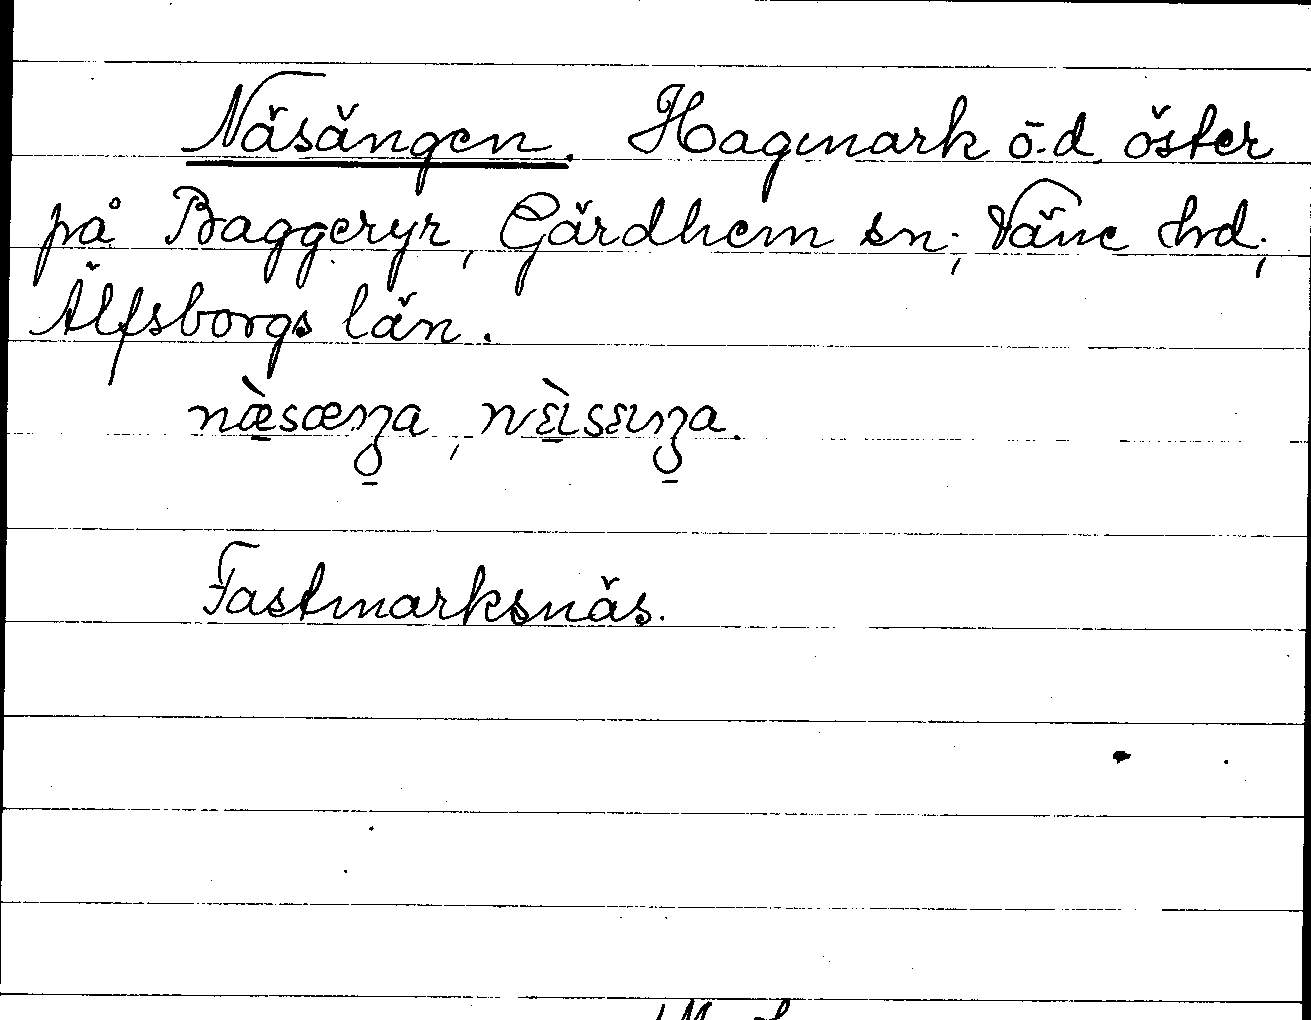 Näsängen. Hagmark o.d. öster
på Baggeryr, Gärdhem sn; Väne hd;
Älfsborgs län.
næ̀sæŋa, nɛ̀ısɛıŋa.
Fastmarksnäs.